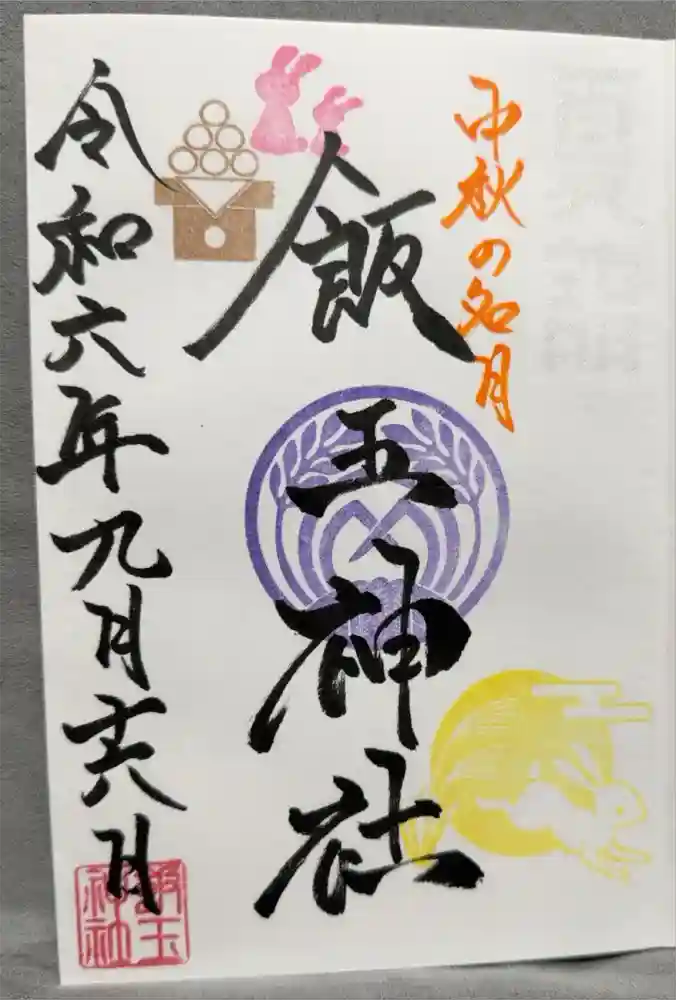 中秋の名月
飯玉神社
令和六年九月十六日
飯玉
神社